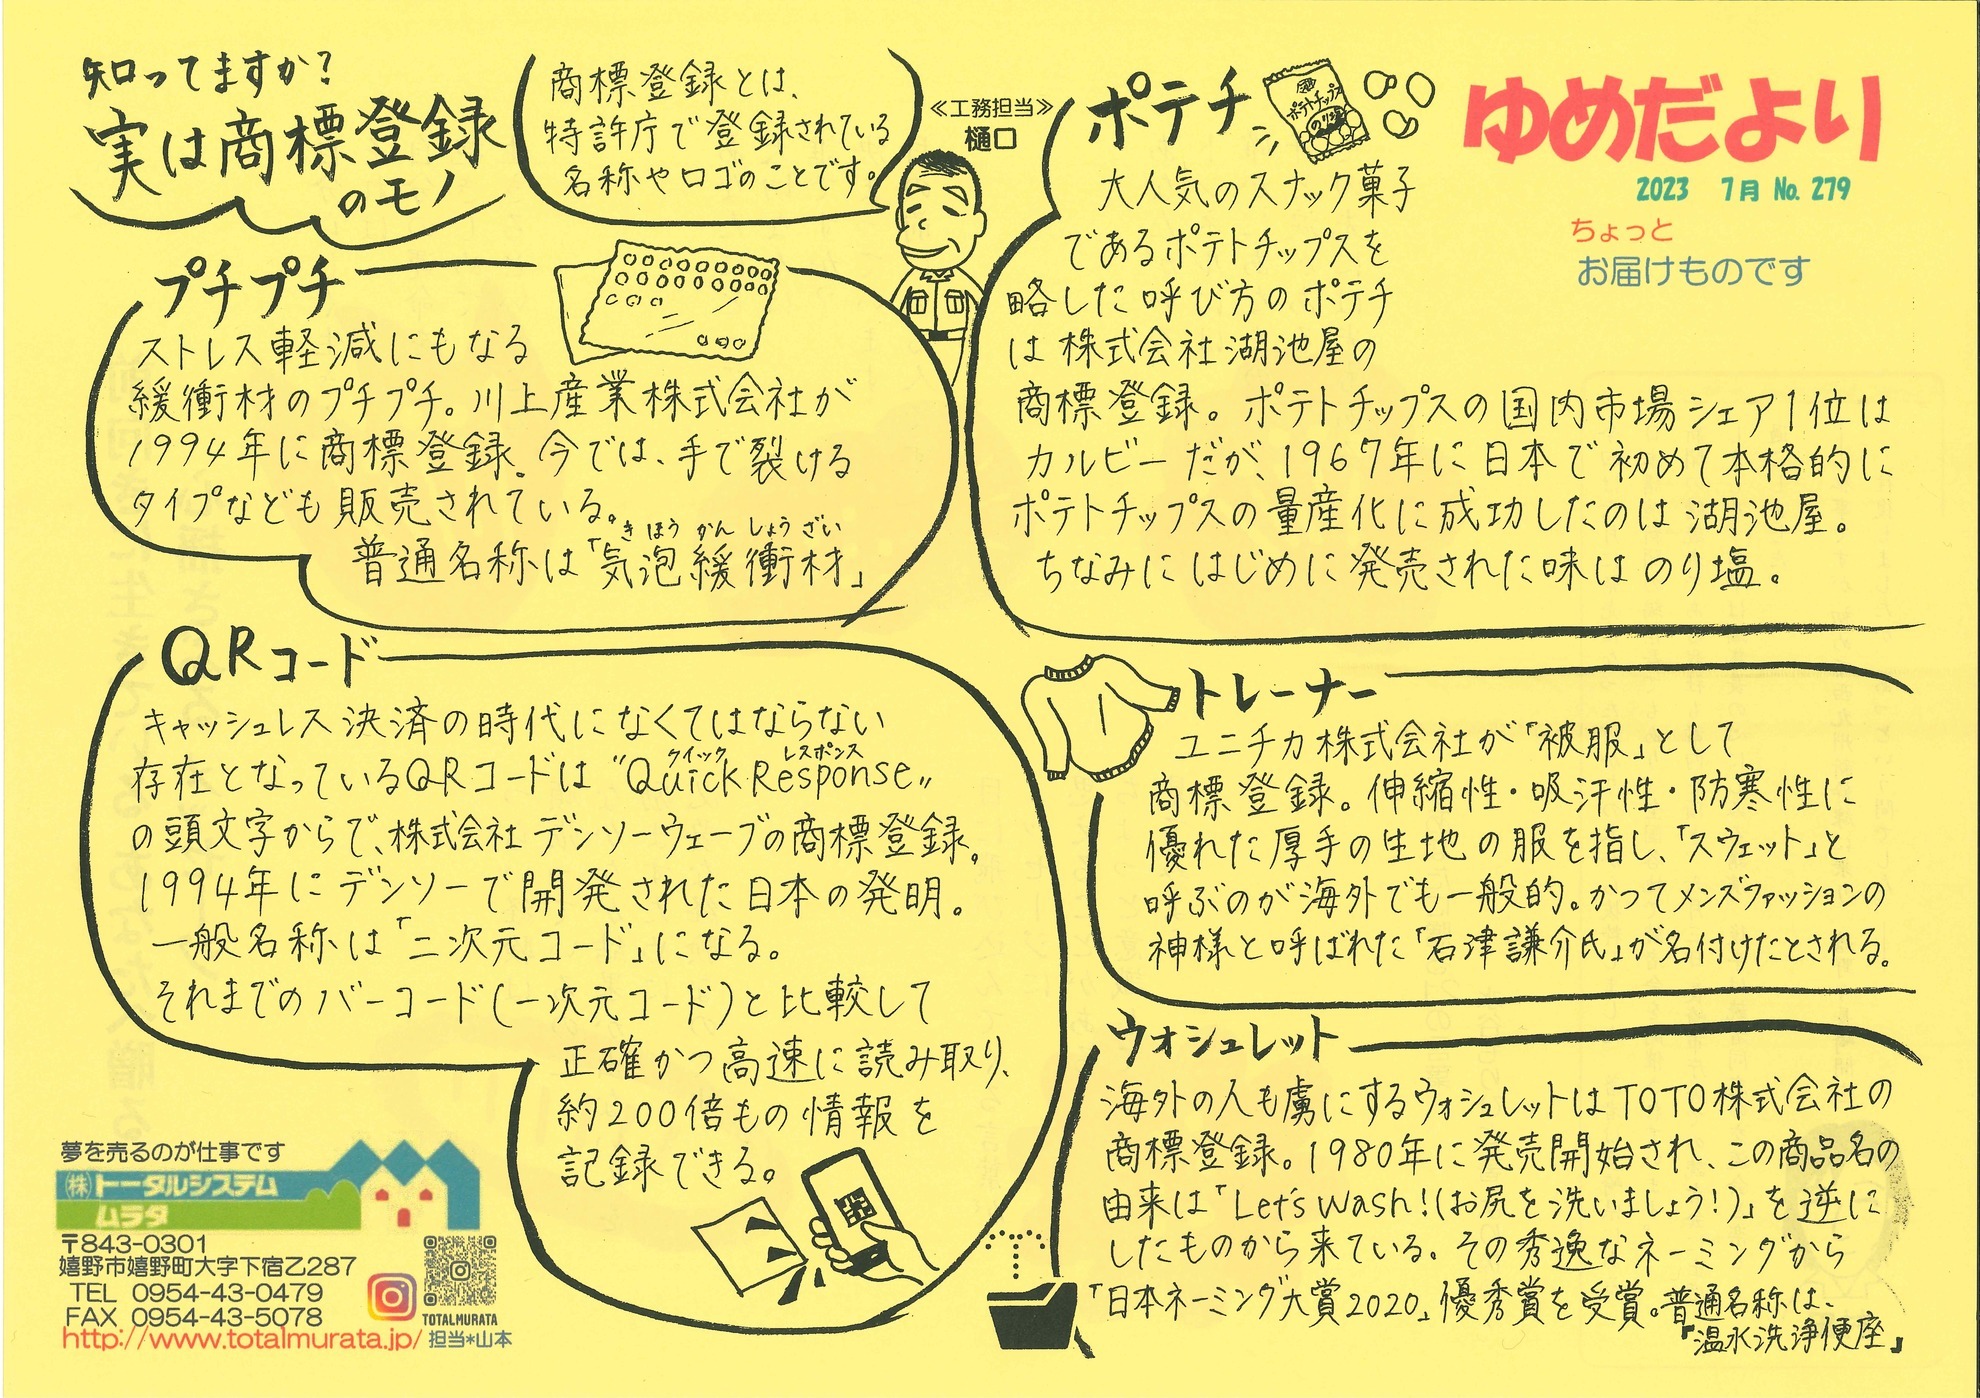 知ってますか?
実は商標登録
のモノ
商標登録とは、
特許庁で登録されている
名称やロゴのことです。
≪工務担当≫
樋口
ゆめだより
2023 7月 No. 279
ちょっと
お届けものです
ポテチ
ポテトチップス
のり塩
大人気のスナック菓子
であるポテトチップスを
略した呼び方のポテチ
は株式会社湖池屋の
商標登録。ポテトチップスの国内市場シェア1位は
カルビーだが、1967年に日本で初めて本格的に
ポテトチップスの量産化に成功したのは湖池屋。
ちなみにはじめに発売された味はのり塩。
プチプチ
ストレス軽減にもなる
緩衝材のプチプチ。川上産業株式会社が
1994年に商標登録。今では、手で裂ける
タイプなども販売されている。
きほうかんしょうざい
普通名称は「気泡緩衝材」
QRコード
キャッシュレス決済の時代になくてはならない
クイック レスポンス
存在となっているQRコードは"Quick Response"
の頭文字からで、株式会社デンソーウェーブの商標登録。
1994年にデンソーで開発された日本の発明。
一般名称は「二次元コード」になる。
それまでのバーコード(一次元コード)と比較して
正確かつ高速に読み取り、
約200倍もの情報を
記録できる。
トレーナー
ユニチカ株式会社が「被服」として
商標登録。伸縮性・吸汗性・防寒性に
優れた厚手の生地の服を指し、「スウェット」と
呼ぶのが海外でも一般的。かつてメンズファッションの
神様と呼ばれた「石津謙介氏」が名付けたとされる。
ウォシュレット
海外の人も虜にするウォシュレットはTOTO株式会社の
商標登録。1980年に発売開始され、この商品名の
由来は「Let's Wash!(お尻を洗いましょう!)」を逆に
したものから来ている。その秀逸なネーミングから
「日本ネーミング大賞2020」優秀賞を受賞。普通名称は、
『温水洗浄便座』
夢を売るのが仕事です
㈱トータルシステム
ムラタ
〒843-0301
嬉野市嬉野町大字下宿乙287
TEL 0954-43-0479
FAX 0954-43-5078
http://www.totalmurata.jp/
TOTALMURATA
担当*山本